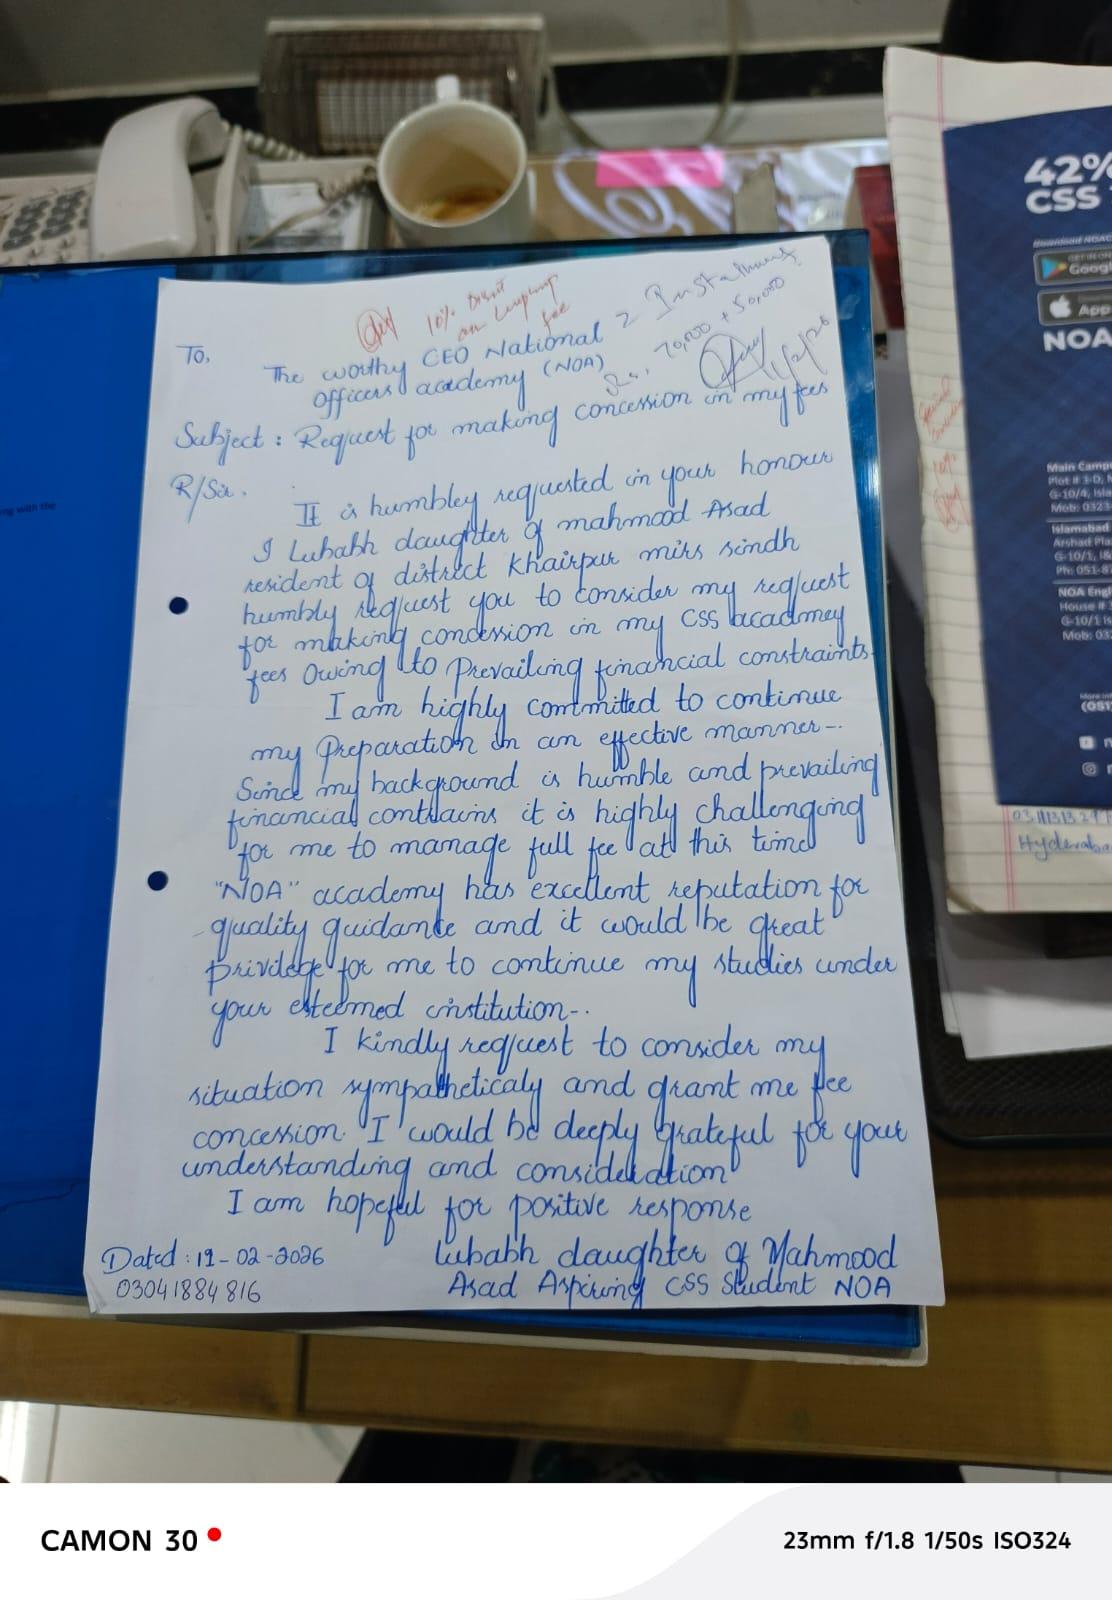 10% Disct
on lumpsump
fee
2 Instalments
Rs. 70,000 + 50,000
To,
The worthy CEO National
Officers academy (NOA)
Subject : Request for making concession in my fees
R/Sir.
It is humbley requested in your honour
I Lubabh daughter of mahmood Asad
resident of district Khairpur mirs sindh
humbly request you to consider my request
for making concession in my CSS acadmey
fees Owing to Prevailing financial constraints.
I am highly committed to continue
my Preparation in an effective manner-.
Since my background is humble and prevailing
financial contrains it is highly challenging
for me to manage full fee at this time
"NOA" academy has excellent reputation for
quality guidance and it would be great
privilege for me to continue my studies under
your esteemed institution-.
I kindly request to consider my
situation sympatheticaly and grant me fee
concession. I would be deeply grateful for your
understanding and consideration
I am hopeful for positive response
Dated : 12-02-2026
03041884816
Lubabh daughter of Mahmood
Asad Aspiring CSS Student NOA
ng with the
42%
CSS
Download NOAC
GET IN ON
Google
App
NOA
Main Camp
Plot # 3-D,
G-10/4, Isla
Mob: 0323
Islamabad
Arshad Pla
G-10/1,
Ph: 051-8
NOA Engl
House #
G-10/1 Is
Mob: 03
(051
Hyderaba
CAMON 30
23mm f/1.8 1/50s ISO324